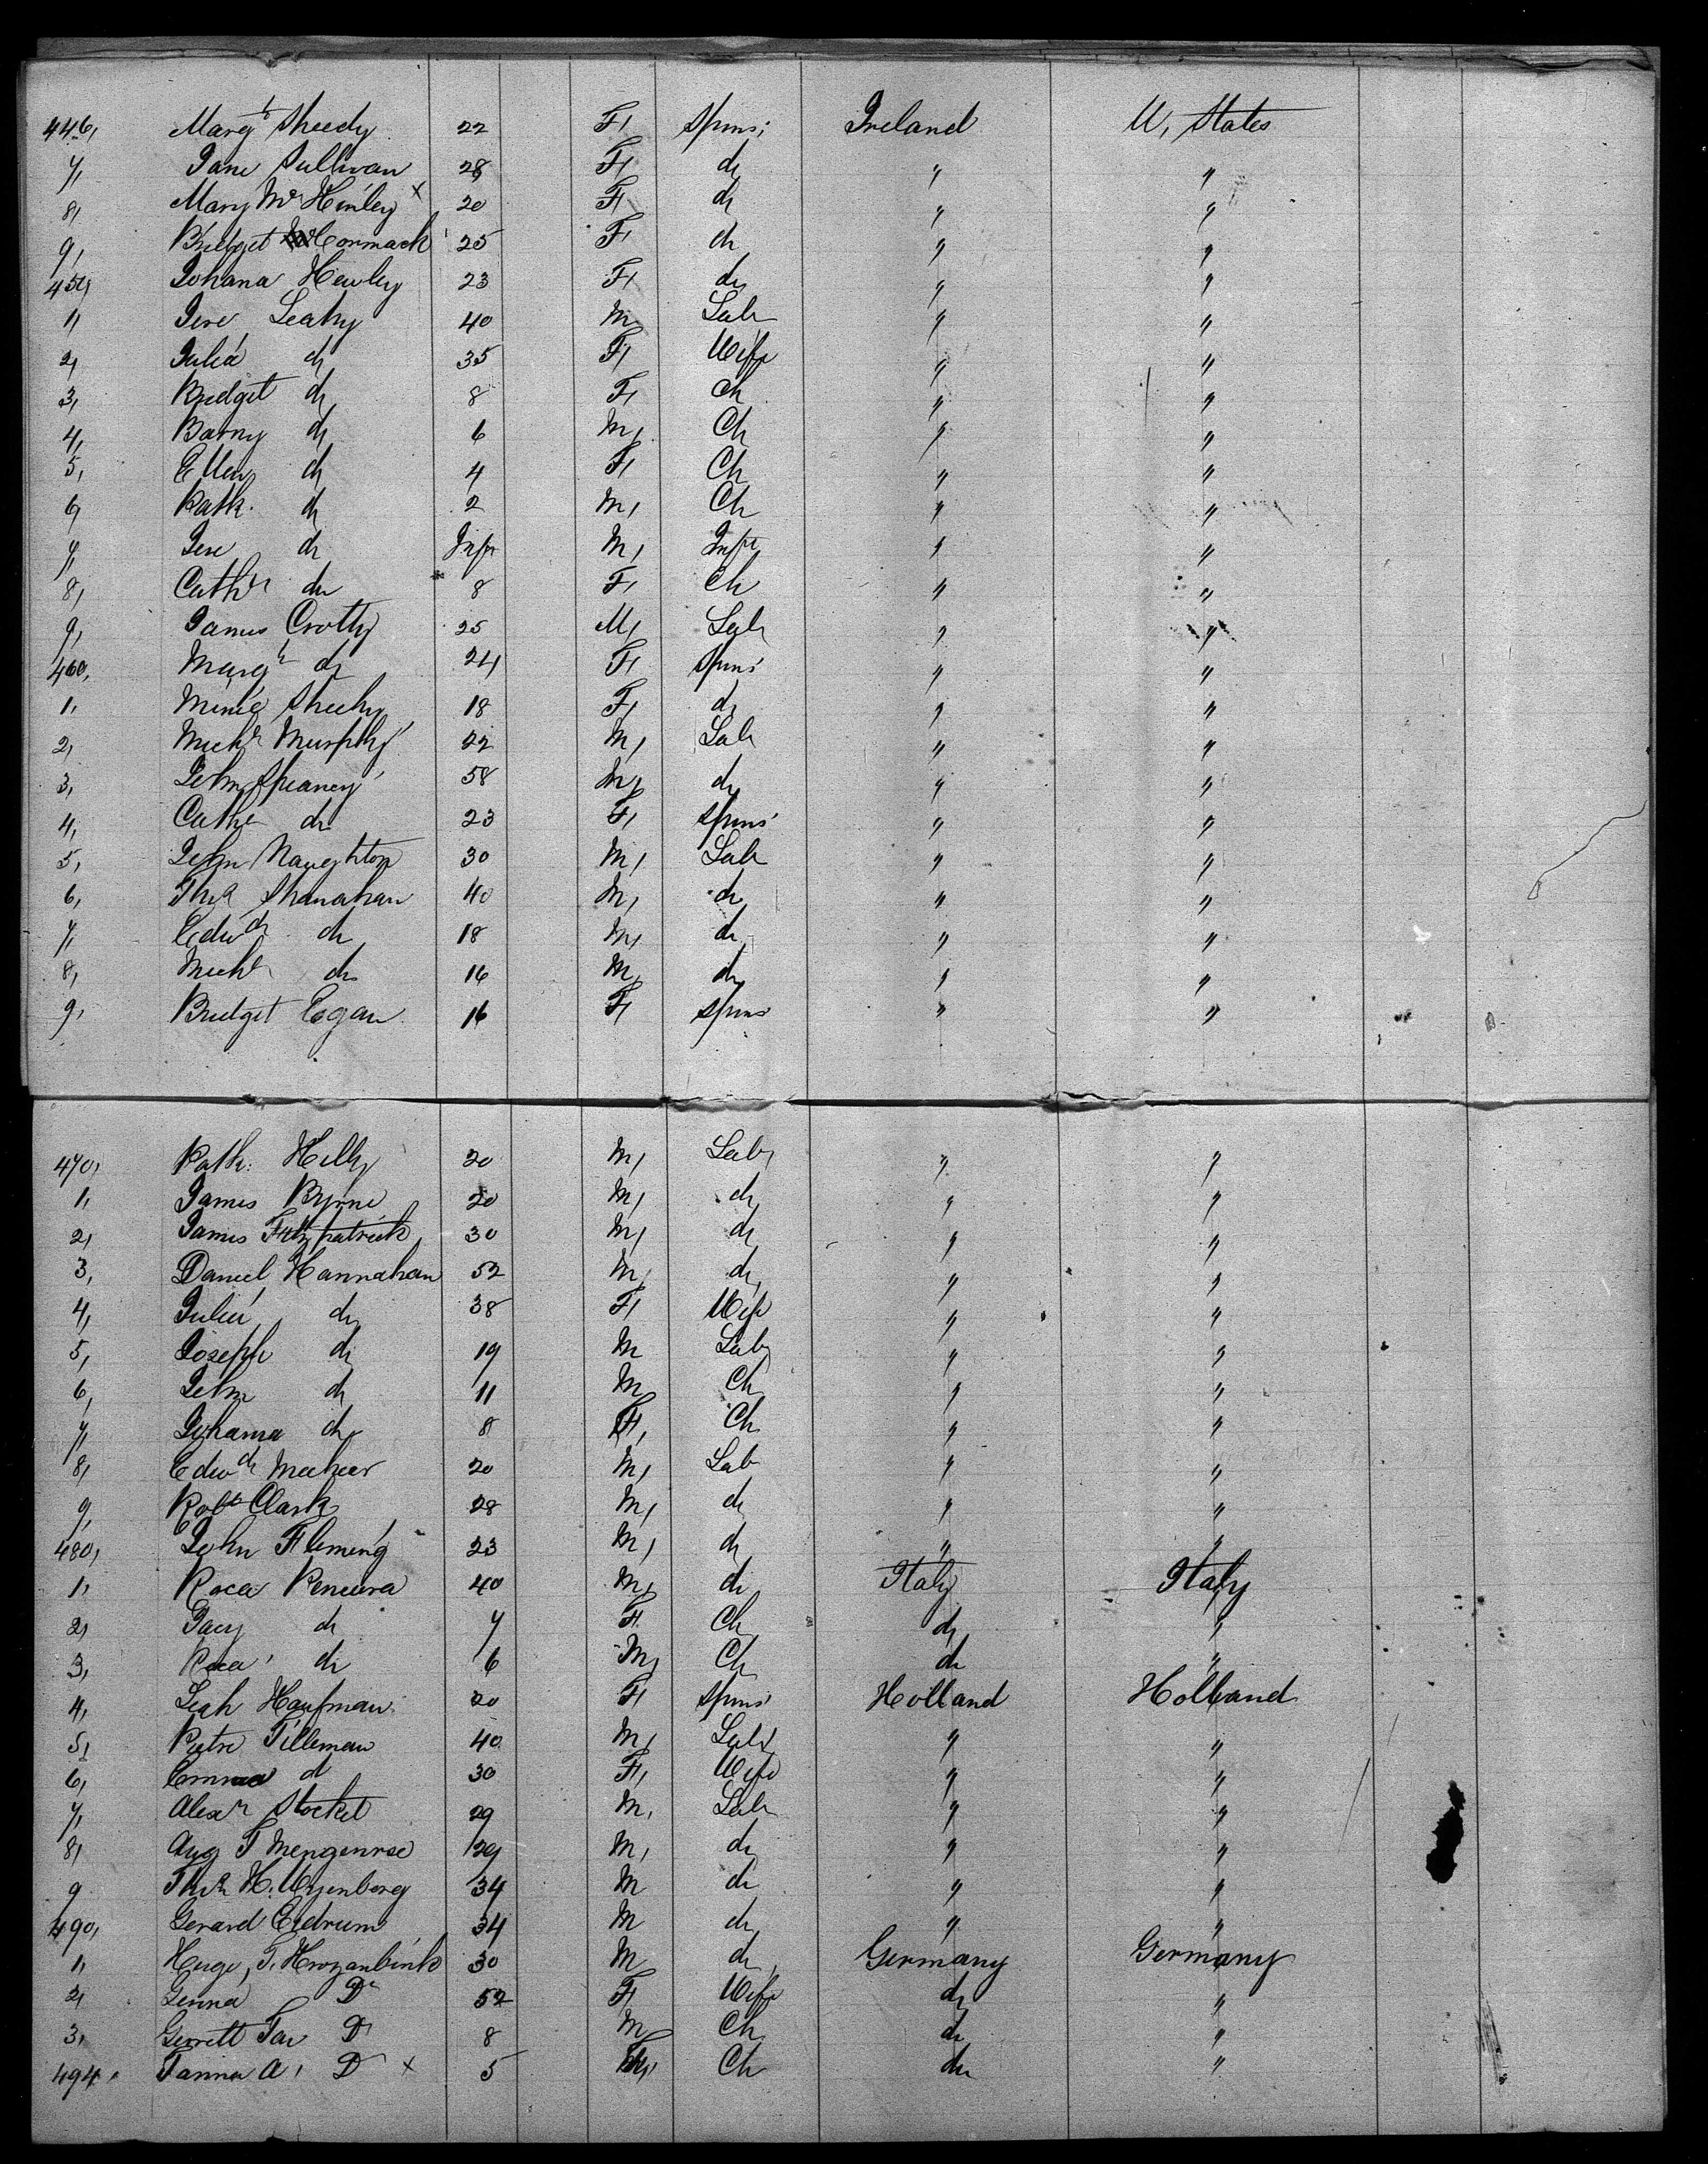 446, Marg^t Sheedy 22 F, Spins; Ireland U, States
7, Jane Sullivan 28 F, do " "
8, Mary Mc Hinley x 20 F, do " "
9, Bridget Cormack 25 F, do " "
450, Johana Hewley 23 F, do " "
1, Jere Leahy 40 M, Lab " "
2, Julia do 35 F, Wife " "
3, Bridget do 8 F, Ch " "
4, Barny do 6 M, Ch " "
5, Ellen do 4 F, Ch " "
6, Patk. do 2 M, Ch " "
7, Jere do Inft M, Inft " "
8, Cath^n do 8 F, Ch " "
9, James Crotty 25 M, Lab " "
460, Marg^t do 24 F, Spins " "
1, Minie Sheehy 18 F, do " "
2, Mich^l Murphy 22 M, Lab " "
3, John 58 M, do " "
4, Cathe do 23 F, Spins " "
5, John Naughton 30 M, Lab " "
6, Tho^s Shanahan 40 M, do " "
7, Edw^d do 18 M, do " "
8, Mich^l do 16 M, do " "
9, Bridget Egan 16 F, Spins " "
470, Patk. Helly 20 M, Lab " "
1, James Byrne 20 M, do " "
2, James Fitzpatrick 30 M, do " "
3, Daniel Hannahan 52 M, do " "
4, Julia do 38 F, Wife " "
5, Joseph do 19 M Lab " "
6, John do 11 M, Ch " "
7, Johana do 8 F, Ch " "
8, Edw^d Meeher 20 M, Lab " "
9, Rob^t Clark 28 M, do " "
480, John Fleming 23 M, do " "
1, Roca 40 M, do Italy Italy
2, do 7 F. Ch do "
3, Roca do 6 M, Ch do "
4, Leah Haufman 20 F, Spins Holland Holland
5, Pietre Tilleman 40 M, Lab " "
6, Emma do 30 F, Wife " "
7, Alex^r Stockel 29 M, Lab " "
8, Aug T 29 M, do " "
9 Tho^s H. 34 M do " "
490, Gerard 34 M do " "
1, 30 M do, Germany Germany
2, D^o 52 F, Wife do "
3, Gerrett Jan D^o 8 M, Ch do "
494. A, D^o x 5 Ch do "